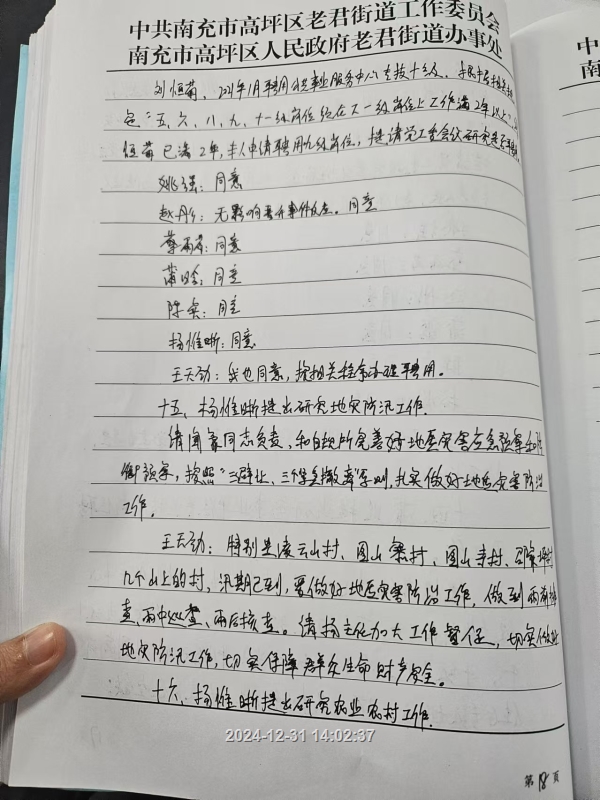 中共南充市高坪区老君街道工作委员会
南充市高坪区人民政府老君街道办事处
中
南
刘恒菊，年1月聘用，事业服务中心专技十二级，
"五、六、八、九、十一级岗位须在下一级岗位上工作满2年以上"，
恒菊已满2年，本人申请聘用九级岗位，提请党工委会议研究是否
姚强：同意
赵彤：无影响事件反应。同意
蔡雨君：同意
蒲：同意
陈实：同意
杨惟晰：同意
王天劲：我也同意，按相关程序办理聘用。
十五、杨惟晰提出研究地灾防汛工作。
请同志负责，和自规所完善好地质灾害应急预案和防
御预案，按照"三避让、三个紧急撤离"原则，扎实做好地质灾害防治
工作。
王天劲：特别是凌云山村、图山寨村、图山寺村、
几个山上的村，汛期已到，要做好地质灾害防治工作，做到雨前排
查、雨中巡查、雨后核查。请杨主任加大工作督促，切实做好
地灾防汛工作，切实保障群众生命财产安全。
十六、杨惟晰提出研究农业农村工作。
2024-12-31 14:02:37
第18页